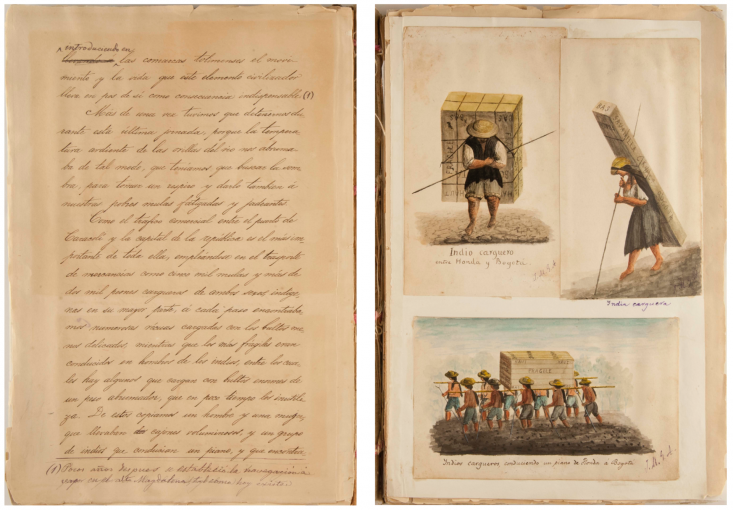 introduciendo en
las comarcas tolimenses el movi-
miento y la vida que este elemento civilizador
lleva en pos de sí como consecuencia indispensable. (1)
Más de una vez tuvimos que detenernos du-
rante esta última jornada, porque la tempera-
tura ardiente de las orillas del río nos abruma-
ba de tal modo, que teníamos que buscar la som-
bra, para tomar un respiro y darlo también á
nuestras pobres mulas fatigadas y jadeantes.
Como el tráfico comercial entre el puerto de
Caracolí y la capital de la república es el más im-
portante de toda ella, empleándose en el trasporte
de mercancías como cinco mil mulas y más de
dos mil peones cargueros de ambos sexos indíge-
nas en su mayor parte, á cada paso encontrába-
mos numerosas récuas cargadas con los bultos me-
nos delicados, mientras que los más frágiles eran
conducidos en hombros de los indios, entre los cua-
les hay algunos que cargan con bultos enormes de
un peso abrumador, que en poco tiempo los inutili-
za. De estos copiamos un hombre y una mujer,
que llevaban cajones voluminosos, y un grupo
de indios que conducían un piano, y que
(1) Pocos años despues se estableció la navegación á
vapor en el alto Magdalena
Indio carguero
entre Honda y Bogotá
J. M. G. A
India carguera
FRAGILE
Indios cargueros conduciendo un piano de Honda a Bogotá
J. M. G. A